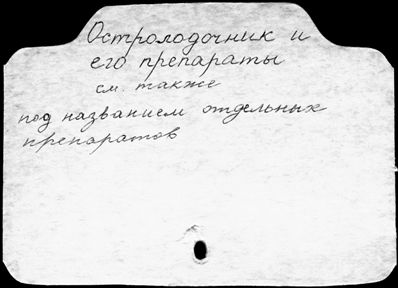 Остролодочник и
его препараты
см. также
под названием отдельных
препаратов